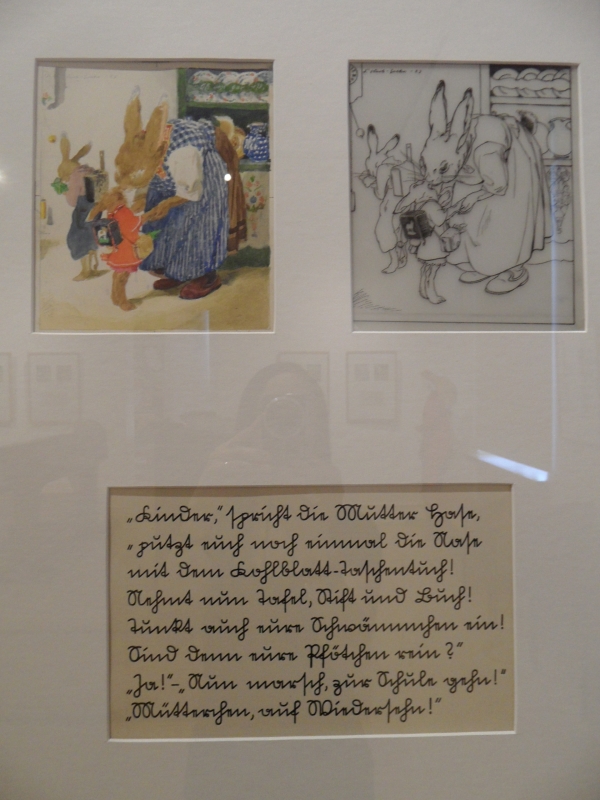 „Kinder,“ spricht die Mutter Hase,
„putzt euch noch einmal die Nase
mit dem Kohlblatt-Taschentuch!
Nehmt nun Tafel, Stift und Buch!
Tunkt auch eure Schwämmchen ein!
Sind denn eure Pfötchen rein?“
„Ja!“ – „Nun marsch, zur Schule gehn!“
„Mütterchen, auf Wiedersehn!“